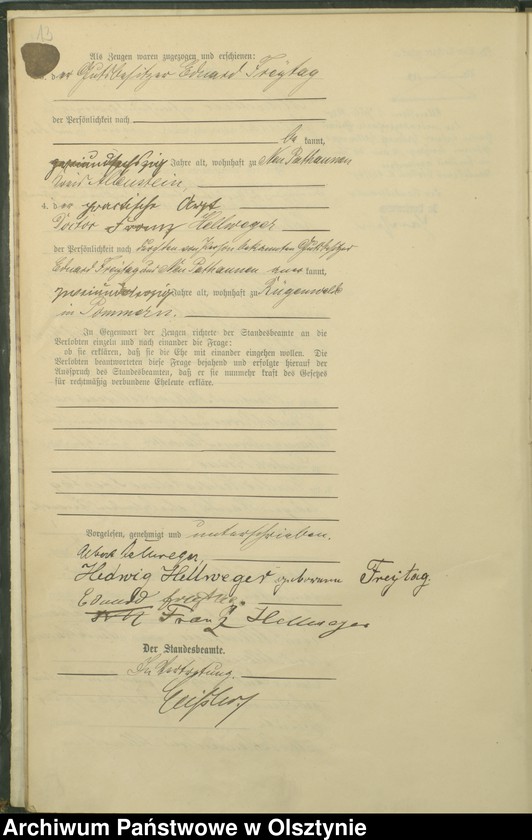 13
Als Zeugen waren zugezogen und erschienen:
der Gutsbesitzer Eduard Freytag
der Persönlichkeit nach
be kannt,
Jahre alt, wohnhaft zu Neu Patkaunen
Allenstein,
4. der practische Arzt
Doctor Franz Hellweger
der Persönlichkeit nach durch den von Person bekannten Gutsbesitzer
Eduard Freytag aus Neu Patkaunen aner kannt,
Jahre alt, wohnhaft zu Rügenwalde
in Pommern.
In Gegenwart der Zeugen richtete der Standesbeamte an die
Verlobten einzeln und nach einander die Frage:
ob sie erklären, daß sie die Ehe mit einander eingehen wollen. Die
Verlobten beantworteten diese Frage bejahend und erfolgte hierauf der
Ausspruch des Standesbeamten, daß er sie nunmehr kraft des Gesetzes
für rechtmäßig verbundene Eheleute erkläre.
Vorgelesen, genehmigt und unterschrieben.
Albert Hellweger
Hedwig Hellweger geborene Freytag.
Eduard Freytag
Franz Hellweger
Der Standesbeamte.
In Vertretung.
Archiwum Państwowe w Olsztynie